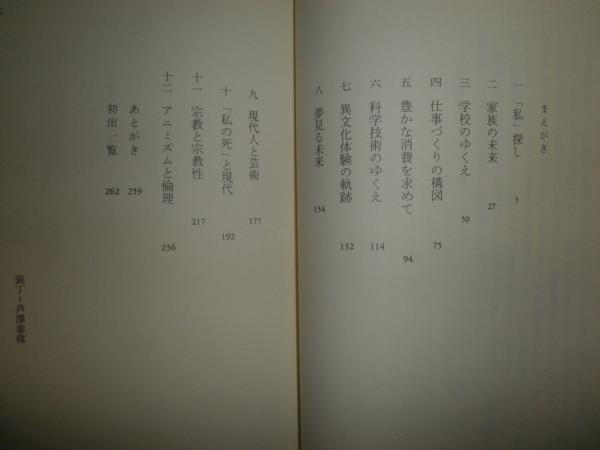 まえがき
一 「私」探し 3
二 家族の未来 27
三 学校のゆくえ 50
四 仕事づくりの構図 75
五 豊かな消費を求めて 94
六 科学技術のゆくえ 114
七 異文化体験の軌跡 132
八 夢見る未来 154
九 現代人と芸術 177
十 「私の死」と現代 192
十一 宗教と宗教性 217
十二 アニミズムと倫理 236
あとがき 259
初出一覧 262
装丁・芦澤泰偉